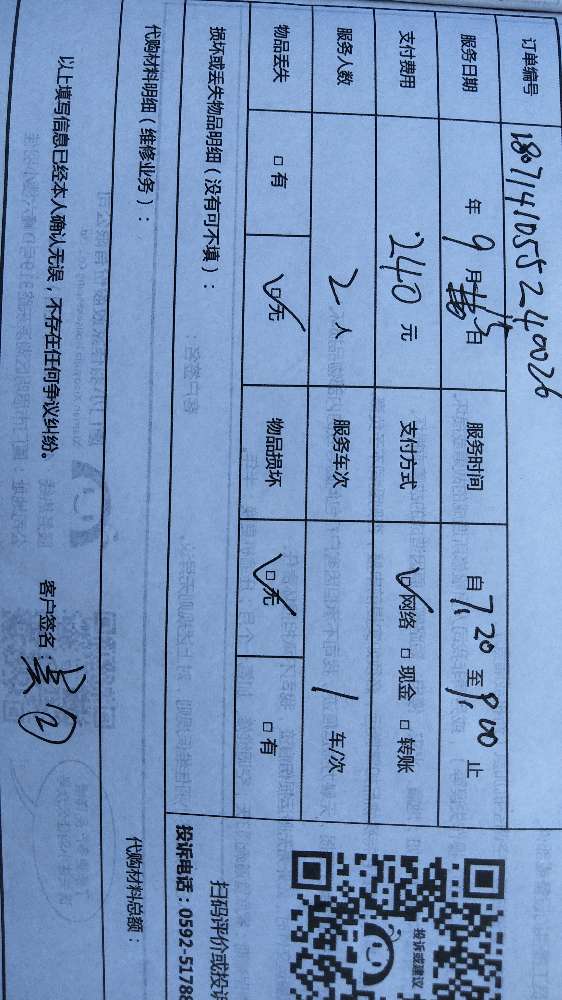 订单编号 1807141055240026
服务日期 年 9 月 15 日 服务时间 自 7:20 至 9:00 止
支付费用 240 元 支付方式 ☑网络 □现金 □转账
服务人数 2 人 服务车次 1 车/次
物品丢失 □有 ☑无 物品损坏 ☑无 □有
损坏或丢失物品明细(没有可不填):
代购材料明细(维修业务): 代购材料总额:
以上填写信息已经本人确认无误,不存在任何争议纠纷。 客户签名:
投诉或建议
扫码评价或投诉
投诉电话:0592-5178